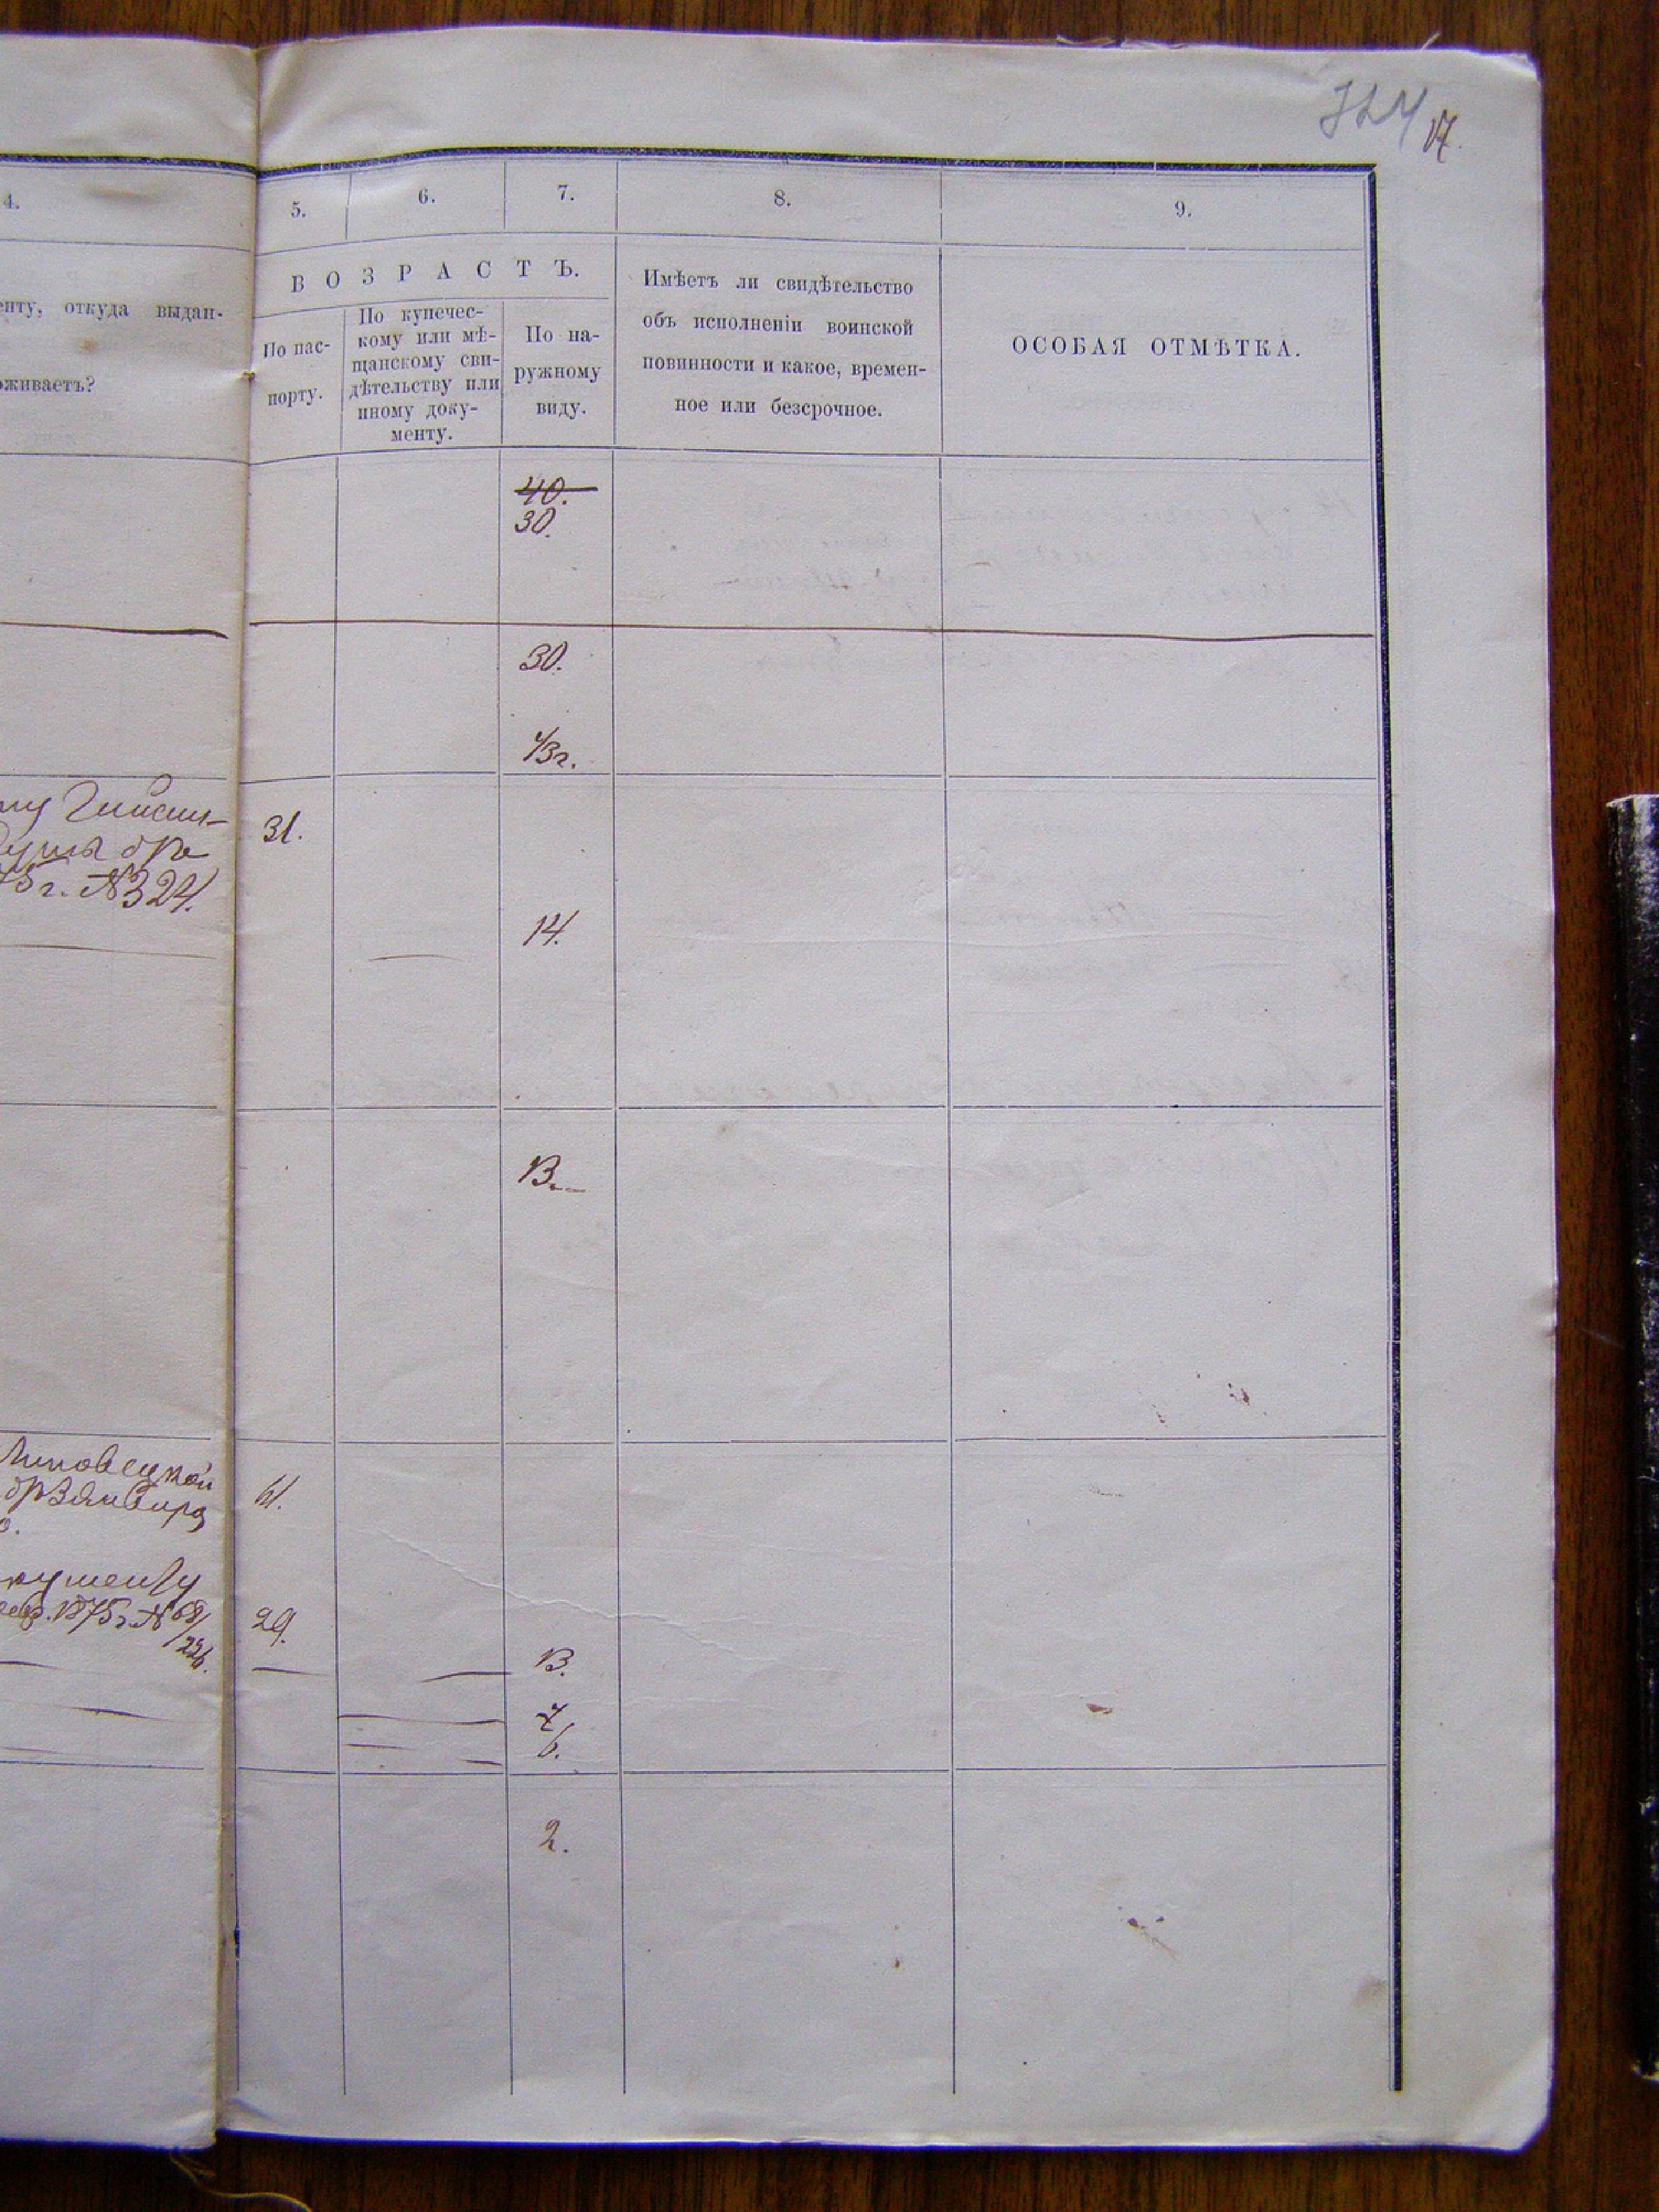 17.
4.
5.
6.
7.
8.
9.
енту, откуда выдан-
оживаетъ?
ВОЗРАСТЪ.
По пас-
порту.
По купечес-
кому или мѣ-
щанскому сви-
дѣтельству или
иному доку-
менту.
По на-
ружному
виду.
Имѣетъ ли свидѣтельство
объ исполненіи воинской
повинности и какое, времен-
ное или безсрочное.
ОСОБАЯ ОТМѢТКА.
40.
30.
30.
г. №324.
31.
14.
13.
Липовецкой
61.
1875 г. № 68/
226.
29.
13.
7
6.
2.